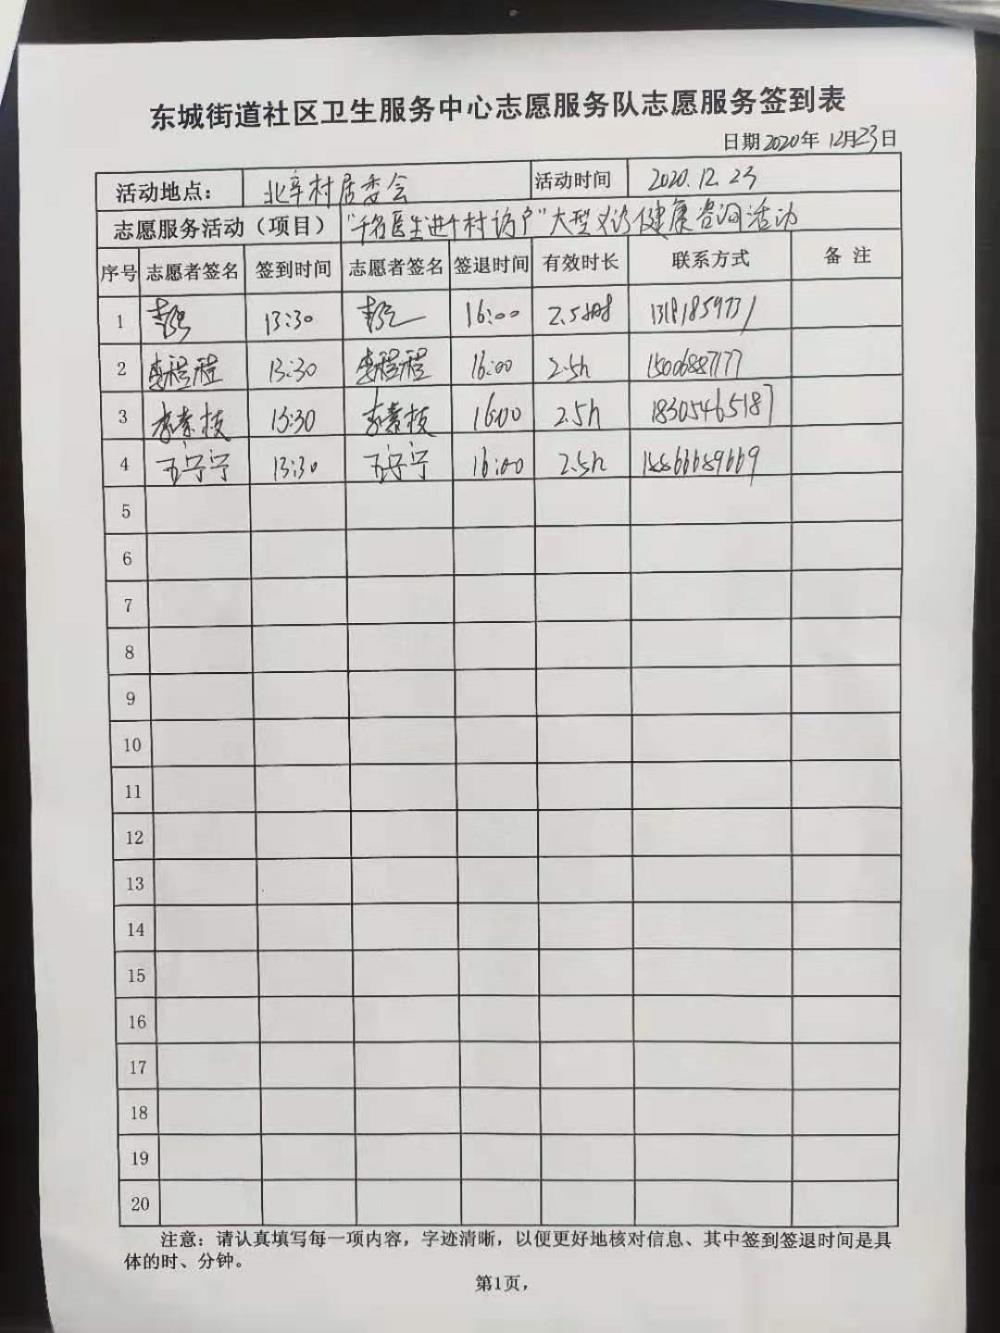 东城街道社区卫生服务中心志愿服务队志愿服务签到表
日期2020年 12月23日
活动地点： 北辛村居委会 活动时间 2020.12.23
志愿服务活动（项目） "千名医生进千村访户"大型义诊健康咨询活动
序号 志愿者签名 签到时间 志愿者签名 签退时间 有效时长 联系方式 备 注
1 13:30 16:00 2.5小时
2 李程程 13:30 李程程 16:00 2.5h 15006887177
3 李素枝 13:30 李素枝 16:00 2.5h 18305465187
4 王宁宁 13:30 王宁宁 16:00 2.5h
5
6
7
8
9
10
11
12
13
14
15
16
17
18
19
20
注意：请认真填写每一项内容，字迹清晰，以便更好地核对信息、其中签到签退时间是具
体的时、分钟。
第1页，